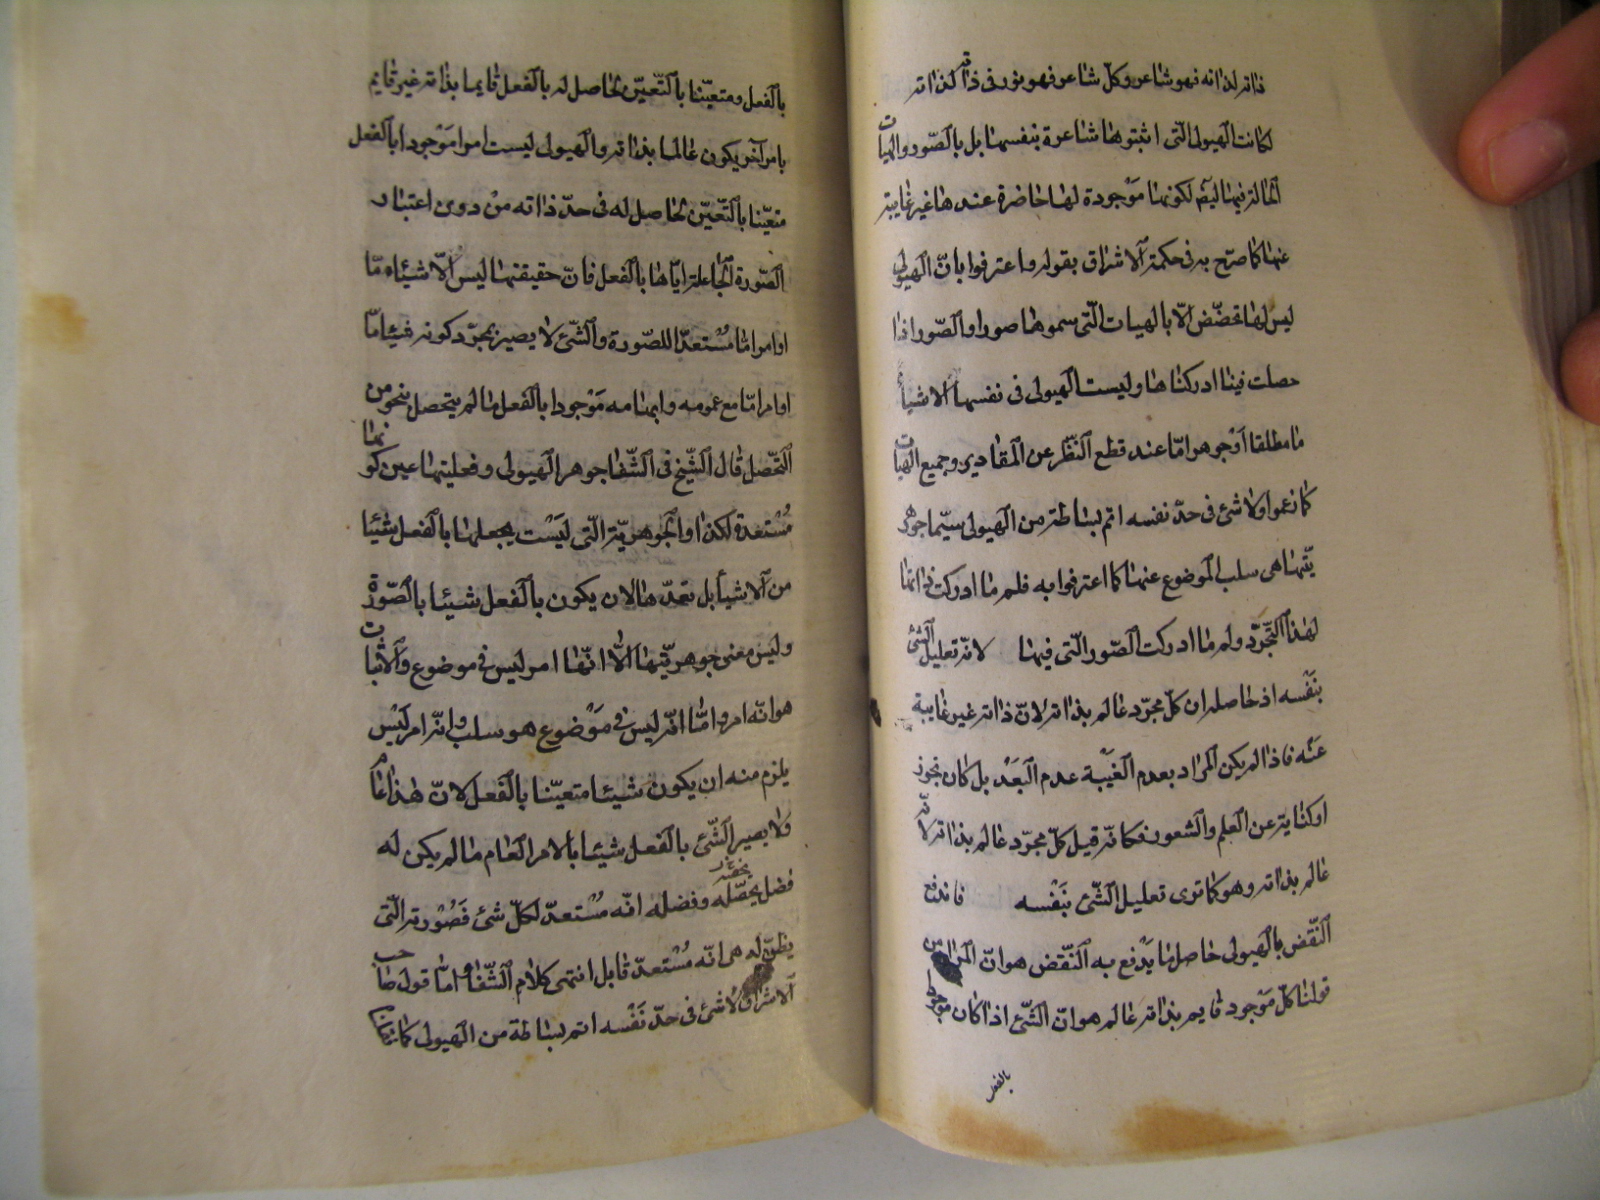 ذاته لذاته فهو شاعر وكلّ شاعر فهو نور فى ذاته لذاته
لكانت الهيولى التى اثبتوها شاعرة بنفسها بل بالصّور والهيات
الحالة فيها لكونها مَوْجودة لها حاضرة عندها غير غايبة
عنها كما صرّح به فى حكمة الاشراق بقوله واعترفوا بانّ الهيولى
ليس لها تخصّص الّا بالهيات الّتى سموها صورا والصّور اذا
حصلت فينا ادركناها وليست الهيولى فى نفسها الا شيأ
ما مطلقا او جوهر امّا عند قطع النّظر عن المقادير وجميع الهيات
كما زعموا ولا شئ فى حدّ نفسه اتم بساطة من الهيولى سيّما جوهر
يّتها هى سلب الموضوع عنها كما اعترفوا به فلم ما ادركت ذاتها
لهذا التّجرّد ولم ما ادركت الصّور الّتى فيها لانه تعليل الشئ
بنَفْسه اذ حاصله ان كلّ مجرّد عالم بذاته لانّ ذاته غير غايبة
عنْه فاذا لم يكن المراد بعدم الغَيْبة عدم البُعْد بل كان تجوز
او كناية عن العلم والشعور فكانه قيل كلّ مجرّد عالم بذاته لانّه
عالم بذاته وهو كما ترى تعليل الشّئ بنَفْسه فاندفع
النّقض بالهيولى حاصل ما يَدْفع به النّقض هو انّ المراد من
قولنا كلّ مَوْجود قايم بذاته عالم هو انّ الشّئ اذا كان موجودا
بالفعل
بالفعل ومتعيّنا بالتّعيّن الحاصل له بالفعل قايما بذاته غير قايم
بامر آخر يكون عالما بذاته والهيولى ليست امرا مَوْجودا بالفعل
متعيّنا بالتّعيّن الحاصل له فى حدّ ذاته منْ دون اعتبار
الصّورة الجاعلة ايّاها بالفعل فانّ حقيقتها ليس الّا شيئا ما
او امرا ما مُسْتعدّا للصّورة والشّئ لا يصير بمجرّد كونه شيئا مّا
او امرا مّا مع عمومه وابهامه مَوْجودا بالفعل ما لم يتحصل بنحو من
التّحصّل قال الشّيخ فى الشّفا جوهر الهيولى وفعليتها عين كونها
مُسْتعدة لكذا والجوهريّة الّتى لها ليْست يجعلها بالفعل شيئا
من الاشيأ بل تعدّها لان يكون بالفعل شيئا بالصّورة
وليس معنى جوهريّتها الّا انّها امر ليس فى موضوع والاثبات
هو انّه امر وامّا انّه ليس فى مَوْضوع هو سلب وانّه امر ليْس
يلزم منه ان يكون شيئا متعيّنا بالفعل لانّ هذا عام
ولا يصير الشّئ بالفعل شيئا بالامر العام ما لم يكن له
فصل يحصّله وفصله انّه مُسْتعدّ لكلّ شئ فصُوْرته الّتى
يظنّ له هى انّه مُسْتعدّ قابل انتهى كلام الشّفا امّا قول صاحب
الاشراق ولا شئ فى حدّ نَفْسه اتم بساطة من الهيولى